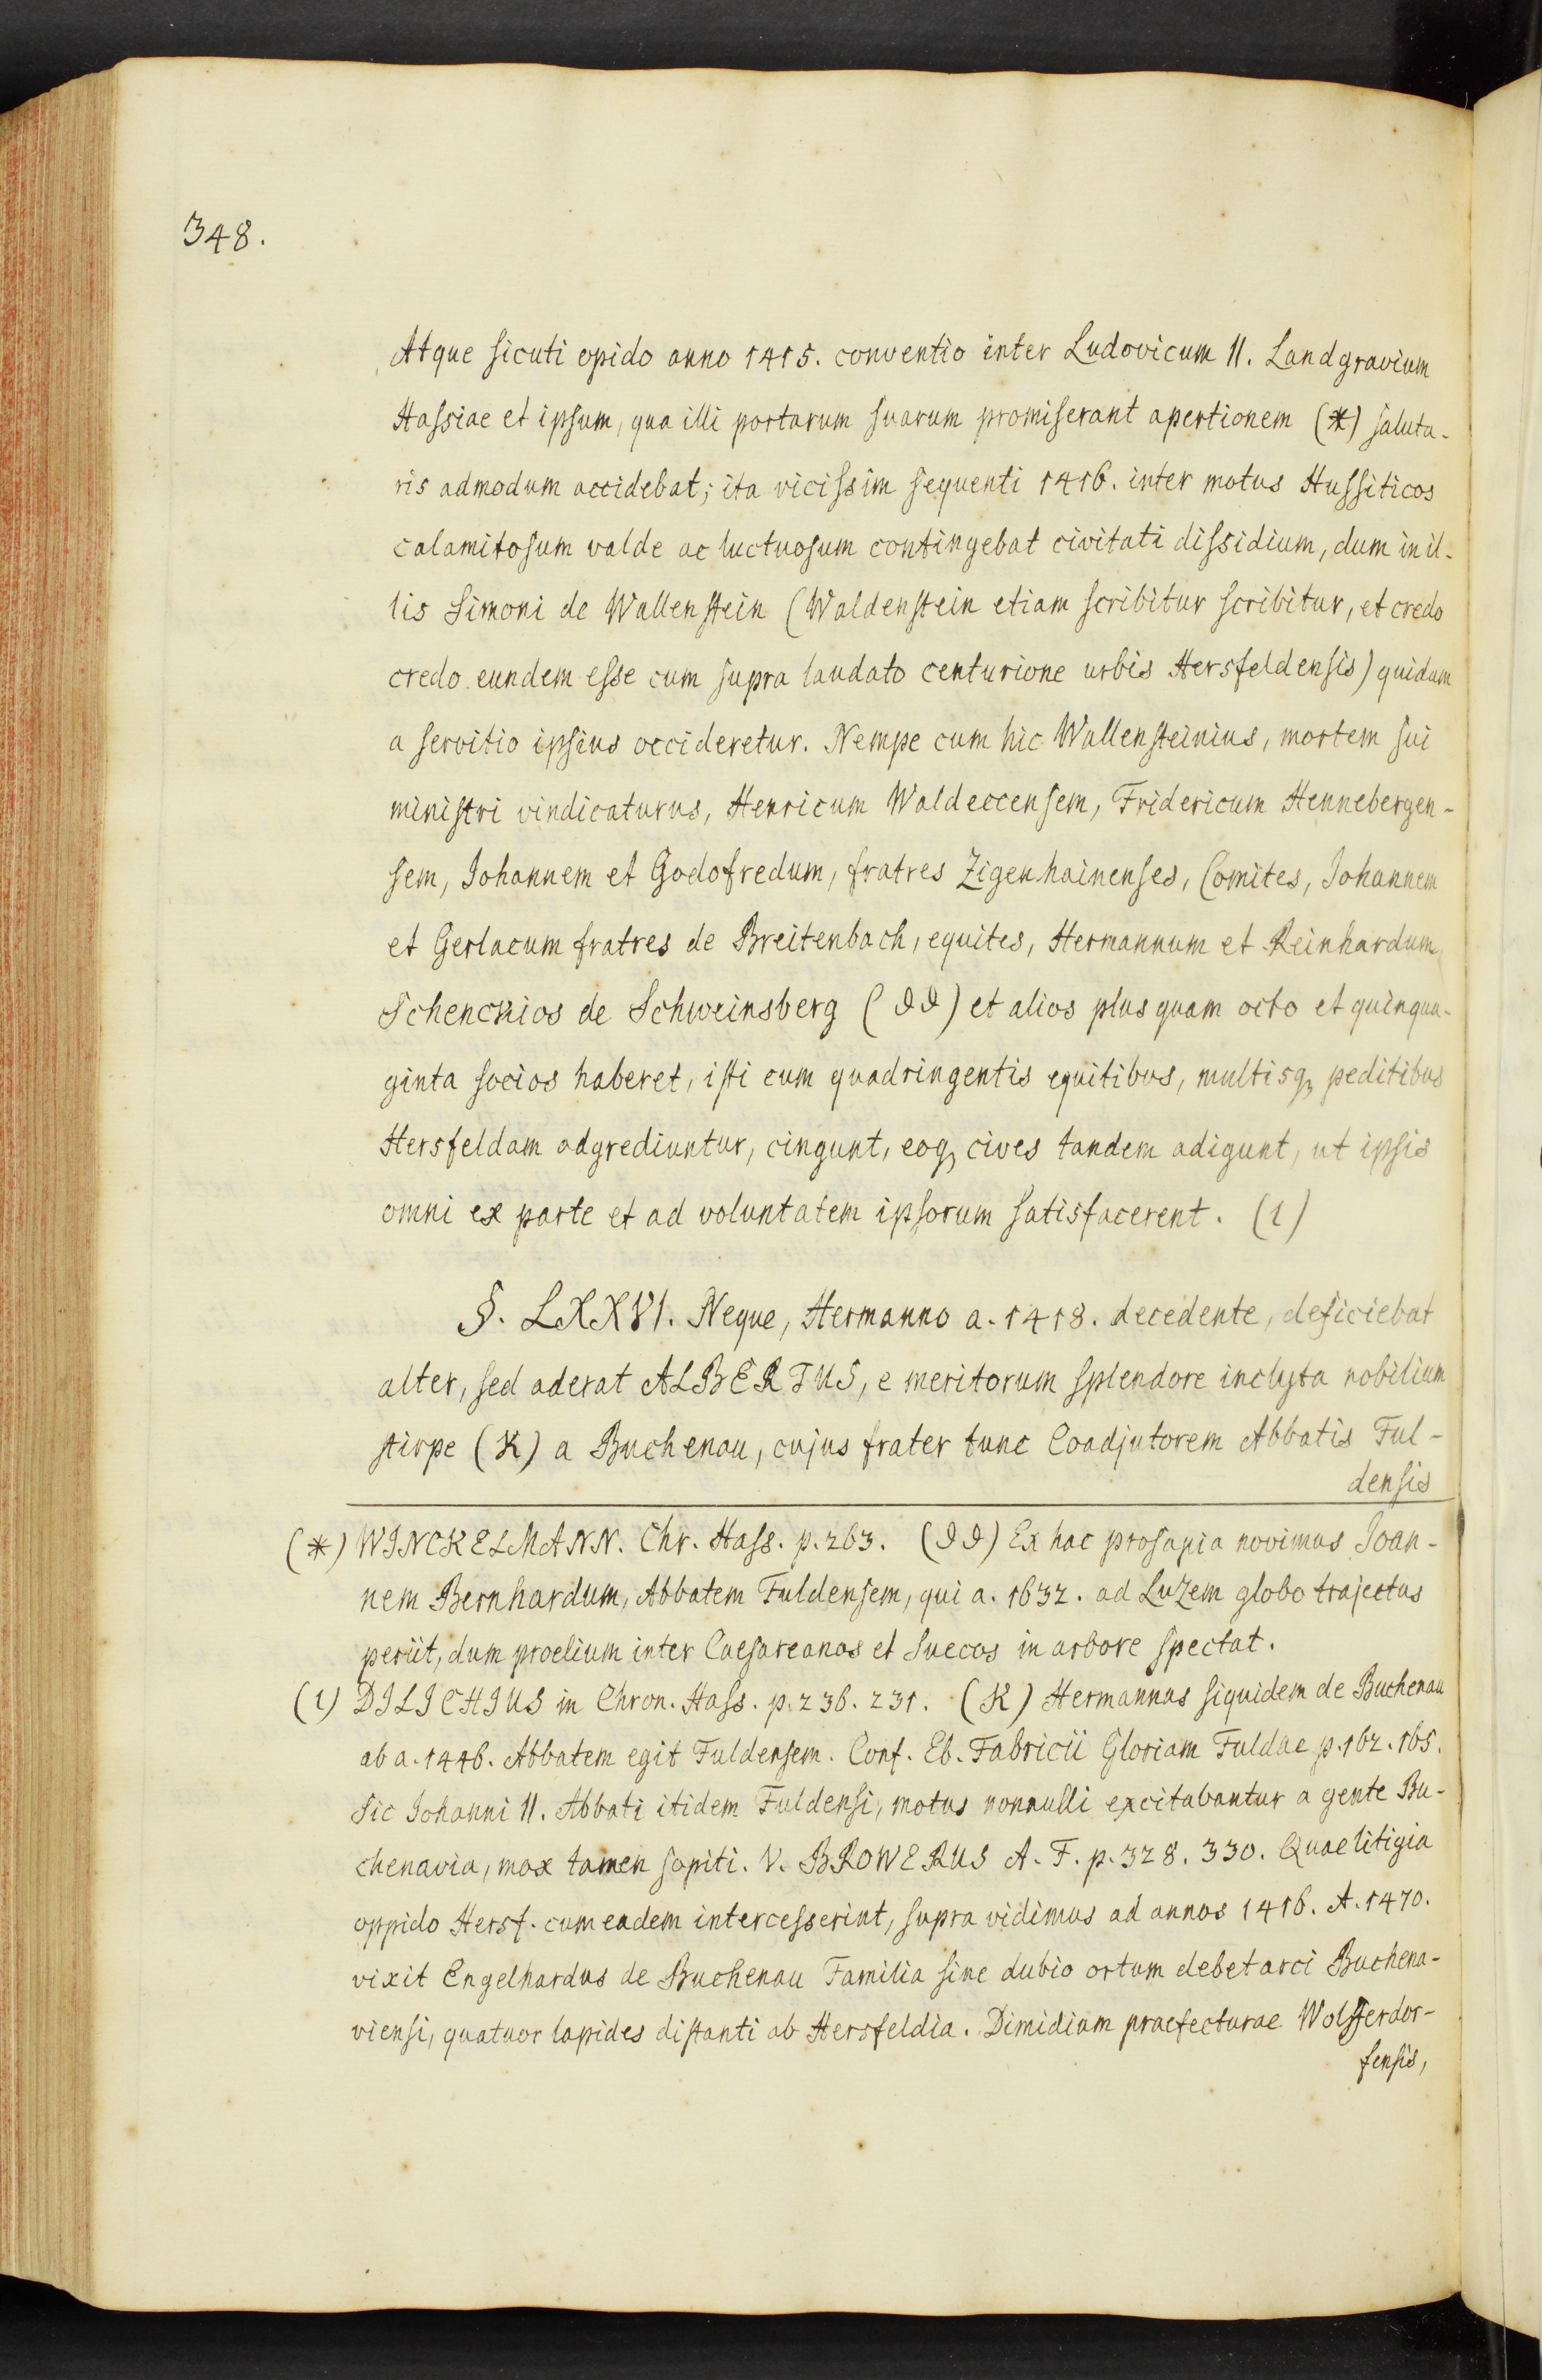 348.
Atque sicuti opido anno 1415. conventio inter Ludovicum II. Landgravium
Hassiae et ipsum, qua illi portarum suarum promiserant apertionem (*) saluta-
ris admodum accidebat; ita vicissim sequenti 1416. inter motus Hussiticos
calamitosum valde ac luctuosum contingebat civitati dissidium, dum in il-
lis Simoni de Wallenstein (Waldenstein etiam scribitur scribitur, et credo
credo eundem esse cum supra laudato centurione urbis Hersfeldensis) quidam
a servitio ipsius occideretur. Nempe cum hic Wallensteinius, mortem sui
ministri vindicaturus, Henricum Waldeccensem, Fridericum Hennebergen-
sem, Johannem et Godofredum, fratres Zigenhainenses, Comites, Johannem
et Gerlacum fratres de Breitenbach, equites, Hermannum et Reinhardum
Schenckios de Schweinsberg (JJ) et alios plus quam octo et quinqua-
ginta socios haberet, isti cum quadringentis equitibus, multisq, peditibus
Hersfeldam adgrediuntur, cingunt, eoq, cives tandem adigunt, ut ipsis
omni ex parte et ad voluntatem ipsorum satisfacerent. (1)
§. LXXVI. Neque, Hermanno a. 1418. decedente, deficiebat
alter, sed aderat ALBERTUS, e meritorum splendore inclyta nobilium
stirpe (K) a Buchenau, cujus frater tunc Coadjutorem Abbatis Ful-
densis
(*) WINCKELMANN. Chr. Hass. p. 263. (JJ) Ex hac prosapia novimus Joan-
nem Bernhardum, Abbatem Fuldensem, qui a. 1632. ad Luzem globo trajectus
periit, dum proelium inter Caesareanos et Suecos in arbore spectat.
(1) DILICHIUS in Chron. Hass. p. 236. 231. (K) Hermannus siquidem de Buchenau
ab a. 1446. Abbatem egit Fuldensem. Conf. Eb. Fabricii Gloriam Fuldae p. 162. 165.
Sic Johanni II. Abbati itidem Fuldensi, motus nonnulli excitabantur a gente Bu-
chenavia, mox tamen sopiti. V. BROWERUS A. F. p. 328. 330. Quae litigia
oppido Hersf. cum eadem intercesserint, supra vidimus ad annos 1416. A. 1470.
vixit Engelhardus de Buchenau Familia sine dubio ortum debet arci Buchena-
viensi, quatuor lapides distanti ab Hersfeldia. Dimidium praefecturae Wolfferdor-
fensis,